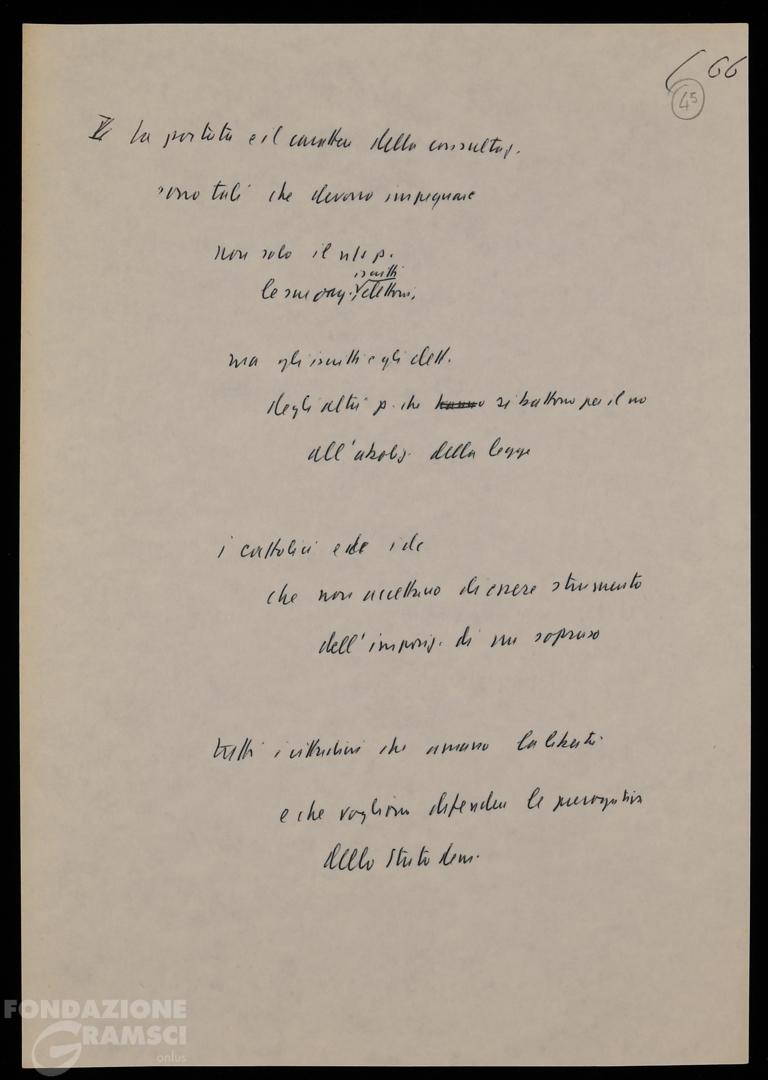 666
45
V La portata e il carattere della consultaz.
sono tali che devono impegnare
non solo il n/s p.
iscritti
le sue org. elettori,
ma gli iscritti e gli elett.
degli altri p. che hanno si battono per il no
all'aboliz. della legge
i cattolici e de i dc
che non accettano di essere strumento
dell'imposiz. di un sopruso
tutti i cittadini che amano la libertà
e che vogliono difendere le prerogative
dello Stato dem.
FONDAZIONE
GRAMSCI
onlus